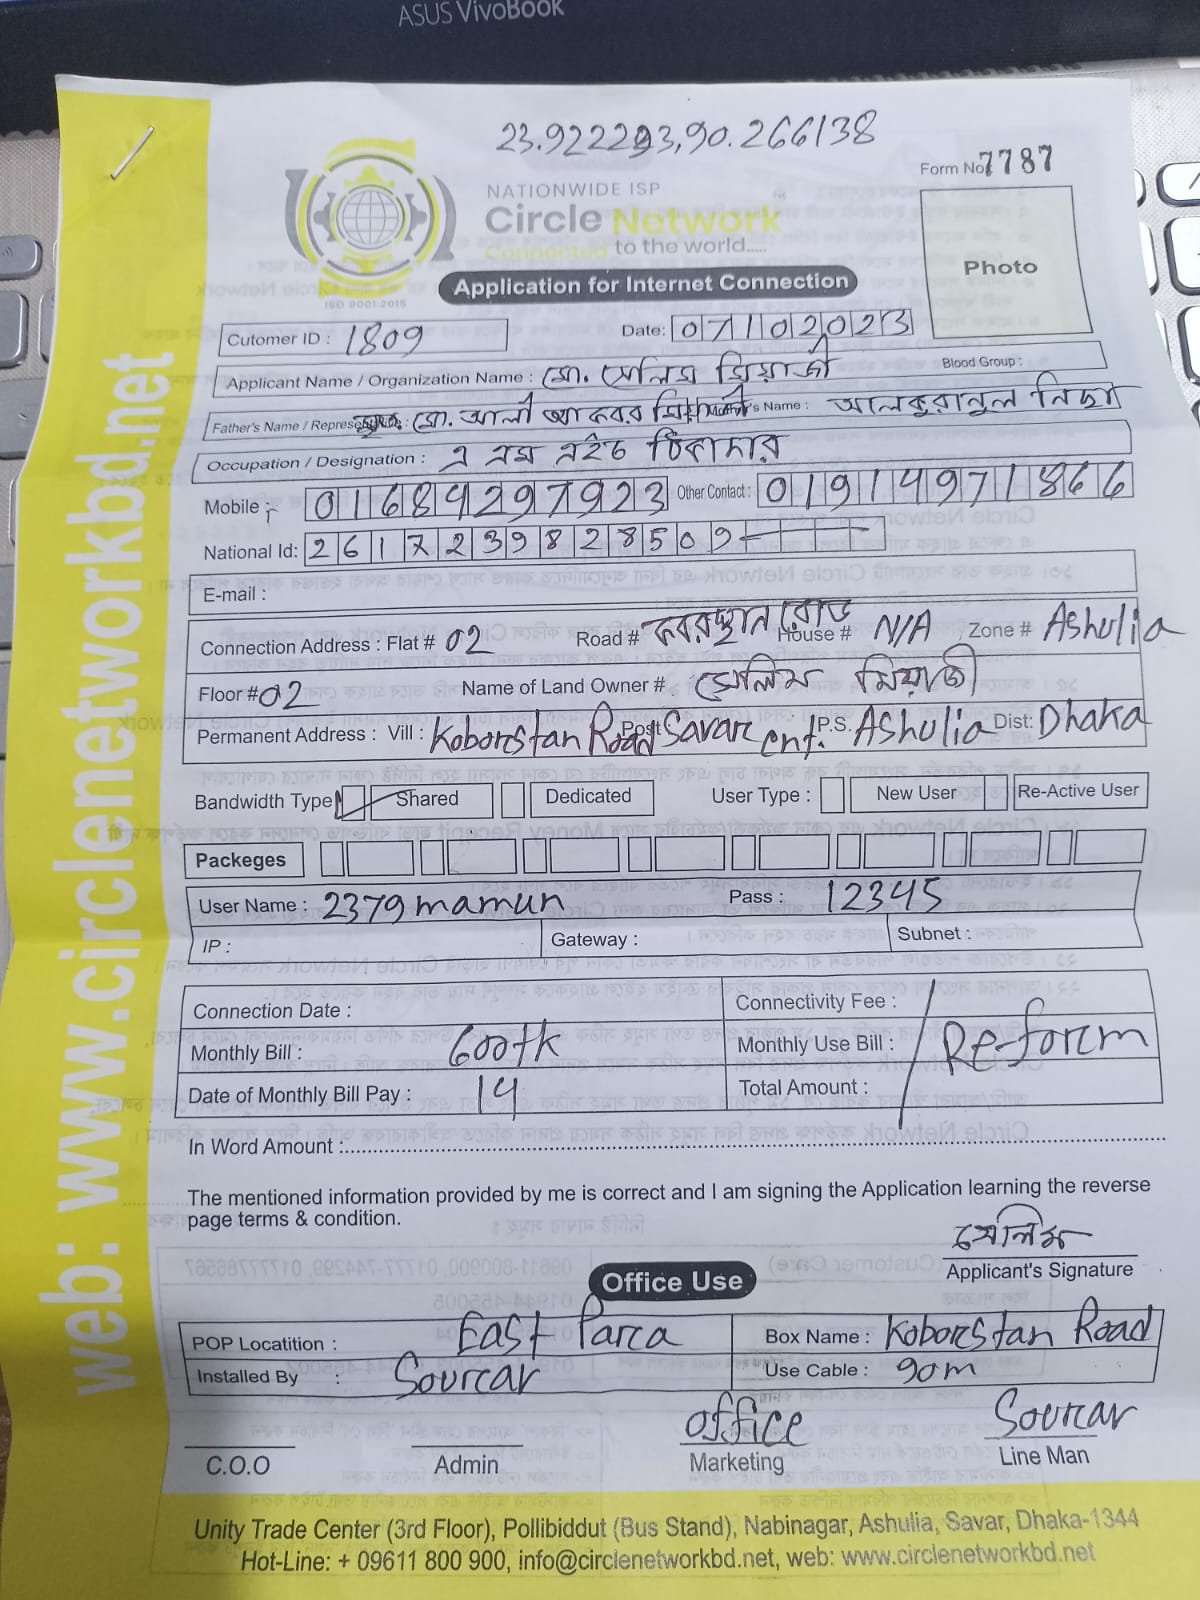 ASUS VivoBook
23.922293,90.266138
Form No: 7787
NATIONWIDE ISP
Circle Network
Connected to the world.....
ISO 9001:2015
Photo
Application for Internet Connection
Cutomer ID : 1809
Date: 07102023
Applicant Name / Organization Name : মো. সেলিম মিয়াজী
Blood Group :
Father's Name / Represe মো. আলী আকবর 's Name : আলকুরানুল নিছা
Occupation / Designation : এ এম এইচ ঠিকাদার
Mobile : 01684297923 Other Contact : 01914971866
National Id: 2617239828509
E-mail :
Connection Address : Flat # 02 Road # কবরস্থান রোড House # N/A , Zone # Ashulia
Floor # 02 Name of Land Owner # সেলিম মিয়াজী
Permanent Address : Vill : Koborstan Road Post Savar cnt. P.S. Ashulia Dist: Dhaka
Bandwidth Type Shared Dedicated User Type : New User Re-Active User
Packeges
User Name : 2379mamun Pass : 12345
IP : Gateway : Subnet :
Connection Date : Connectivity Fee :
Monthly Bill : 600tk Monthly Use Bill : Re-form
Date of Monthly Bill Pay : 14 Total Amount :
In Word Amount :
The mentioned information provided by me is correct and I am signing the Application learning the reverse
page terms & condition.
সেলিম
Applicant's Signature
Office Use
POP Locatition : East Parca Box Name : Koborstan Road
Installed By : Sourcar Use Cable : 90m
office Sourcar
C.O.O Admin Marketing Line Man
Unity Trade Center (3rd Floor), Pollibiddut (Bus Stand), Nabinagar, Ashulia, Savar, Dhaka-1344
Hot-Line: + 09611 800 900, info@circlenetworkbd.net, web: www.circlenetworkbd.net
web: www.circlenetworkbd.net